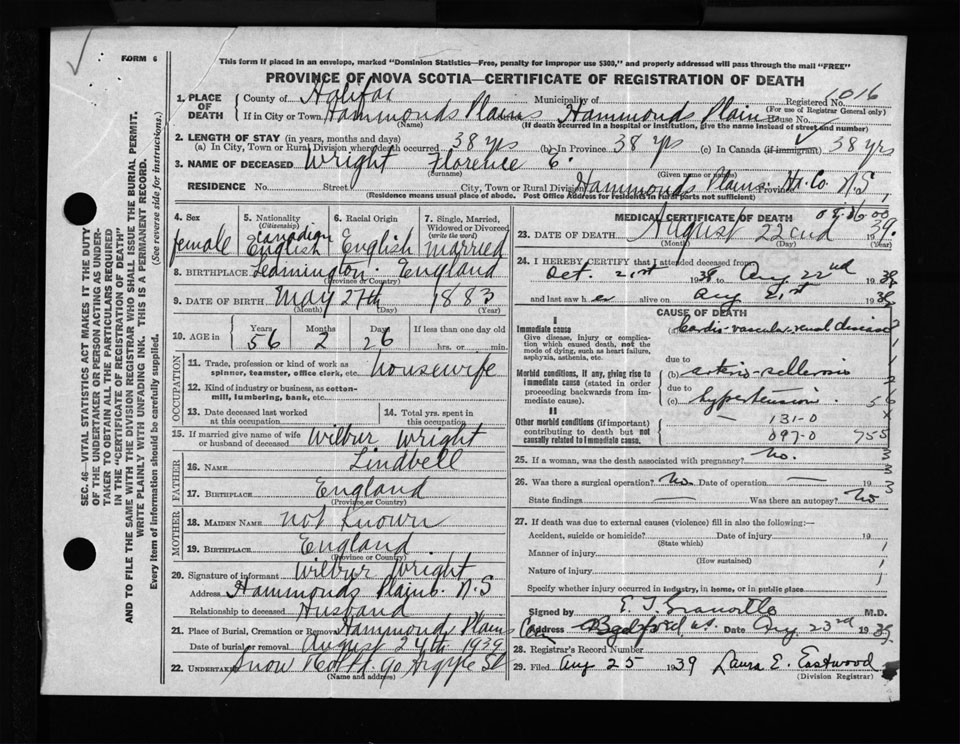 FORM 6
This form if placed in an envelope, marked "Dominion Statistics—Free, penalty for improper use $300," and properly addressed will pass through the mail "FREE"
PROVINCE OF NOVA SCOTIA—CERTIFICATE OF REGISTRATION OF DEATH
1. PLACE OF DEATH County of Halifax Municipality of Registered No. 1016
(For use of Registrar General only)
If in City or Town Hammonds Plains Hammonds Plain House No.
(Name) (If death occurred in a hospital or institution, give the name instead of street and number)
2. LENGTH OF STAY (in years, months and days)
(a) In City, Town or Rural Division where death occurred 38 yrs (b) In Province 38 yrs (c) In Canada (if immigrant) 38 yrs
3. NAME OF DECEASED Wright Florence E.
(Surname) (Given name or names)
RESIDENCE No. Street City, Town or Rural Division Hammonds Plains. Hx. Co. Province N.S
(Residence means usual place of abode. Post Office Address for residents in rural parts not sufficient)
4. Sex female
5. Nationality (Citizenship) Canadian English
6. Racial Origin English
7. Single, Married, Widowed or Divorced (write the word) married
8. BIRTHPLACE Leamington. England
(Province or Country)
9. DATE OF BIRTH May 27th 1883
(Month) (Day) (Year)
10. AGE in Years 56 Months 2 Days 26 If less than one day old hrs. or min.
OCCUPATION
11. Trade, profession or kind of work as spinner, teamster, office clerk, etc. Housewife
12. Kind of industry or business, as cotton-mill, lumbering, bank, etc.
13. Date deceased last worked at this occupation
14. Total yrs. spent in this occupation
15. If married give name of wife or husband of deceased Wilbur Wright
FATHER
16. NAME Lindbell
17. BIRTHPLACE England
(Province or Country)
MOTHER
18. MAIDEN NAME not Known
19. BIRTHPLACE England
(Province or Country)
20. Signature of informant Wilbur Wright
Address Hammonds Plains. N.S
Relationship to deceased Husband
21. Place of Burial, Cremation or Removal Hammond Plains
Date of burial or removal August 24th 1939
22. Undertaker Snow 90 Argyle St
(Name and address)
MEDICAL CERTIFICATE OF DEATH
23. DATE OF DEATH August 22nd 1939
(Month) (Day) (Year)
24. I HEREBY CERTIFY that I attended deceased from
Oct. 21st 1938 to Aug 22nd 1939
and last saw her alive on Aug 21st 1939
CAUSE OF DEATH
I
Immediate cause
Give disease, injury or complication which caused death, not the mode of dying, such as heart failure, asphyxia, asthenia, etc.
(a) Cardio-vascular-renal disease
due to
Morbid conditions, if any, giving rise to immediate cause (stated in order proceeding backwards from immediate cause).
(b) arterio-sclerosis
due to
(c) hypertension
II
Other morbid conditions (if important) contributing to death but not causally related to immediate cause.
131-0
097-0 755
25. If a woman, was the death associated with pregnancy? No.
26. Was there a surgical operation? No. Date of operation — 19
State findings — Was there an autopsy? No
27. If death was due to external causes (violence) fill in also the following:—
Accident, suicide or homicide? Date of injury 19
(State which)
Manner of injury
(How sustained)
Nature of injury
Specify whether injury occurred in industry, in home, or in public place
Signed by M.D.
Address Bedford, N.S. Date Aug 23rd 1939
28. Registrar's Record Number
29. Filed Aug 25 1939 Laura E. Eastwood
(Division Registrar)
SEC. 46—VITAL STATISTICS ACT MAKES IT THE DUTY
OF THE UNDERTAKER OR PERSON ACTING AS UNDER-
TAKER TO OBTAIN ALL THE PARTICULARS REQUIRED
IN THE "CERTIFICATE OF REGISTRATION OF DEATH"
AND TO FILE THE SAME WITH THE DIVISION REGISTRAR WHO SHALL ISSUE THE BURIAL PERMIT.
WRITE PLAINLY WITH UNFADING INK. THIS IS A PERMANENT RECORD.
Every item of information should be carefully supplied. (See reverse side for instructions.)